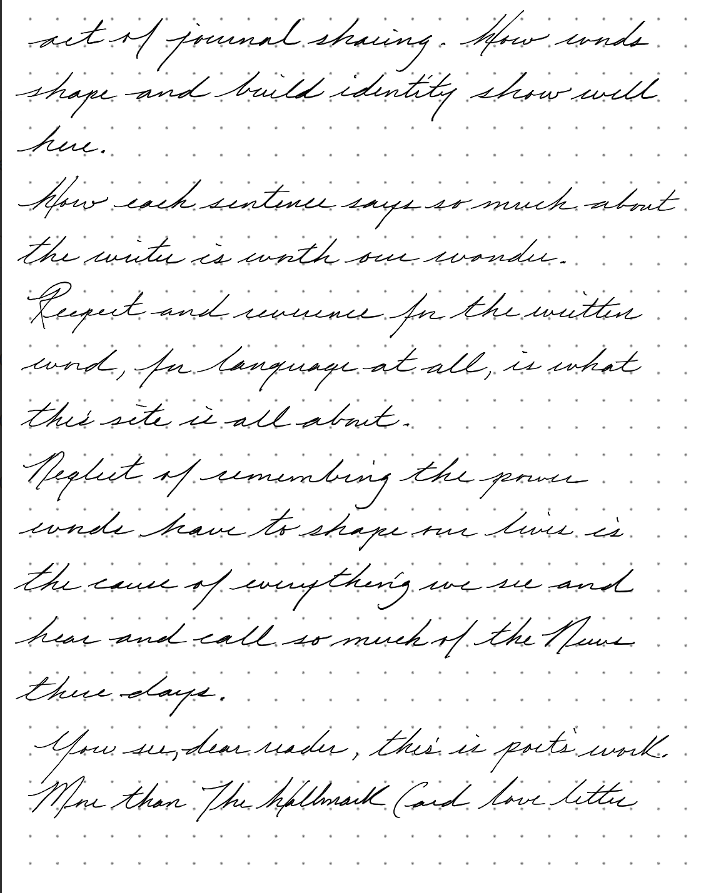 act of journal sharing. How words
shape and build identity show well
here.
How each sentence says so much about
the writer is worth our wonder.
Respect and reverence for the written
word, for language at all, is what
this site is all about.
Neglect of remembring the power
words have to shape our lives is
the cause of everything we see and
hear and call so much of the News
these days.
You see, dear reader, this is poet's work.
More than The Hallmark Card love letter